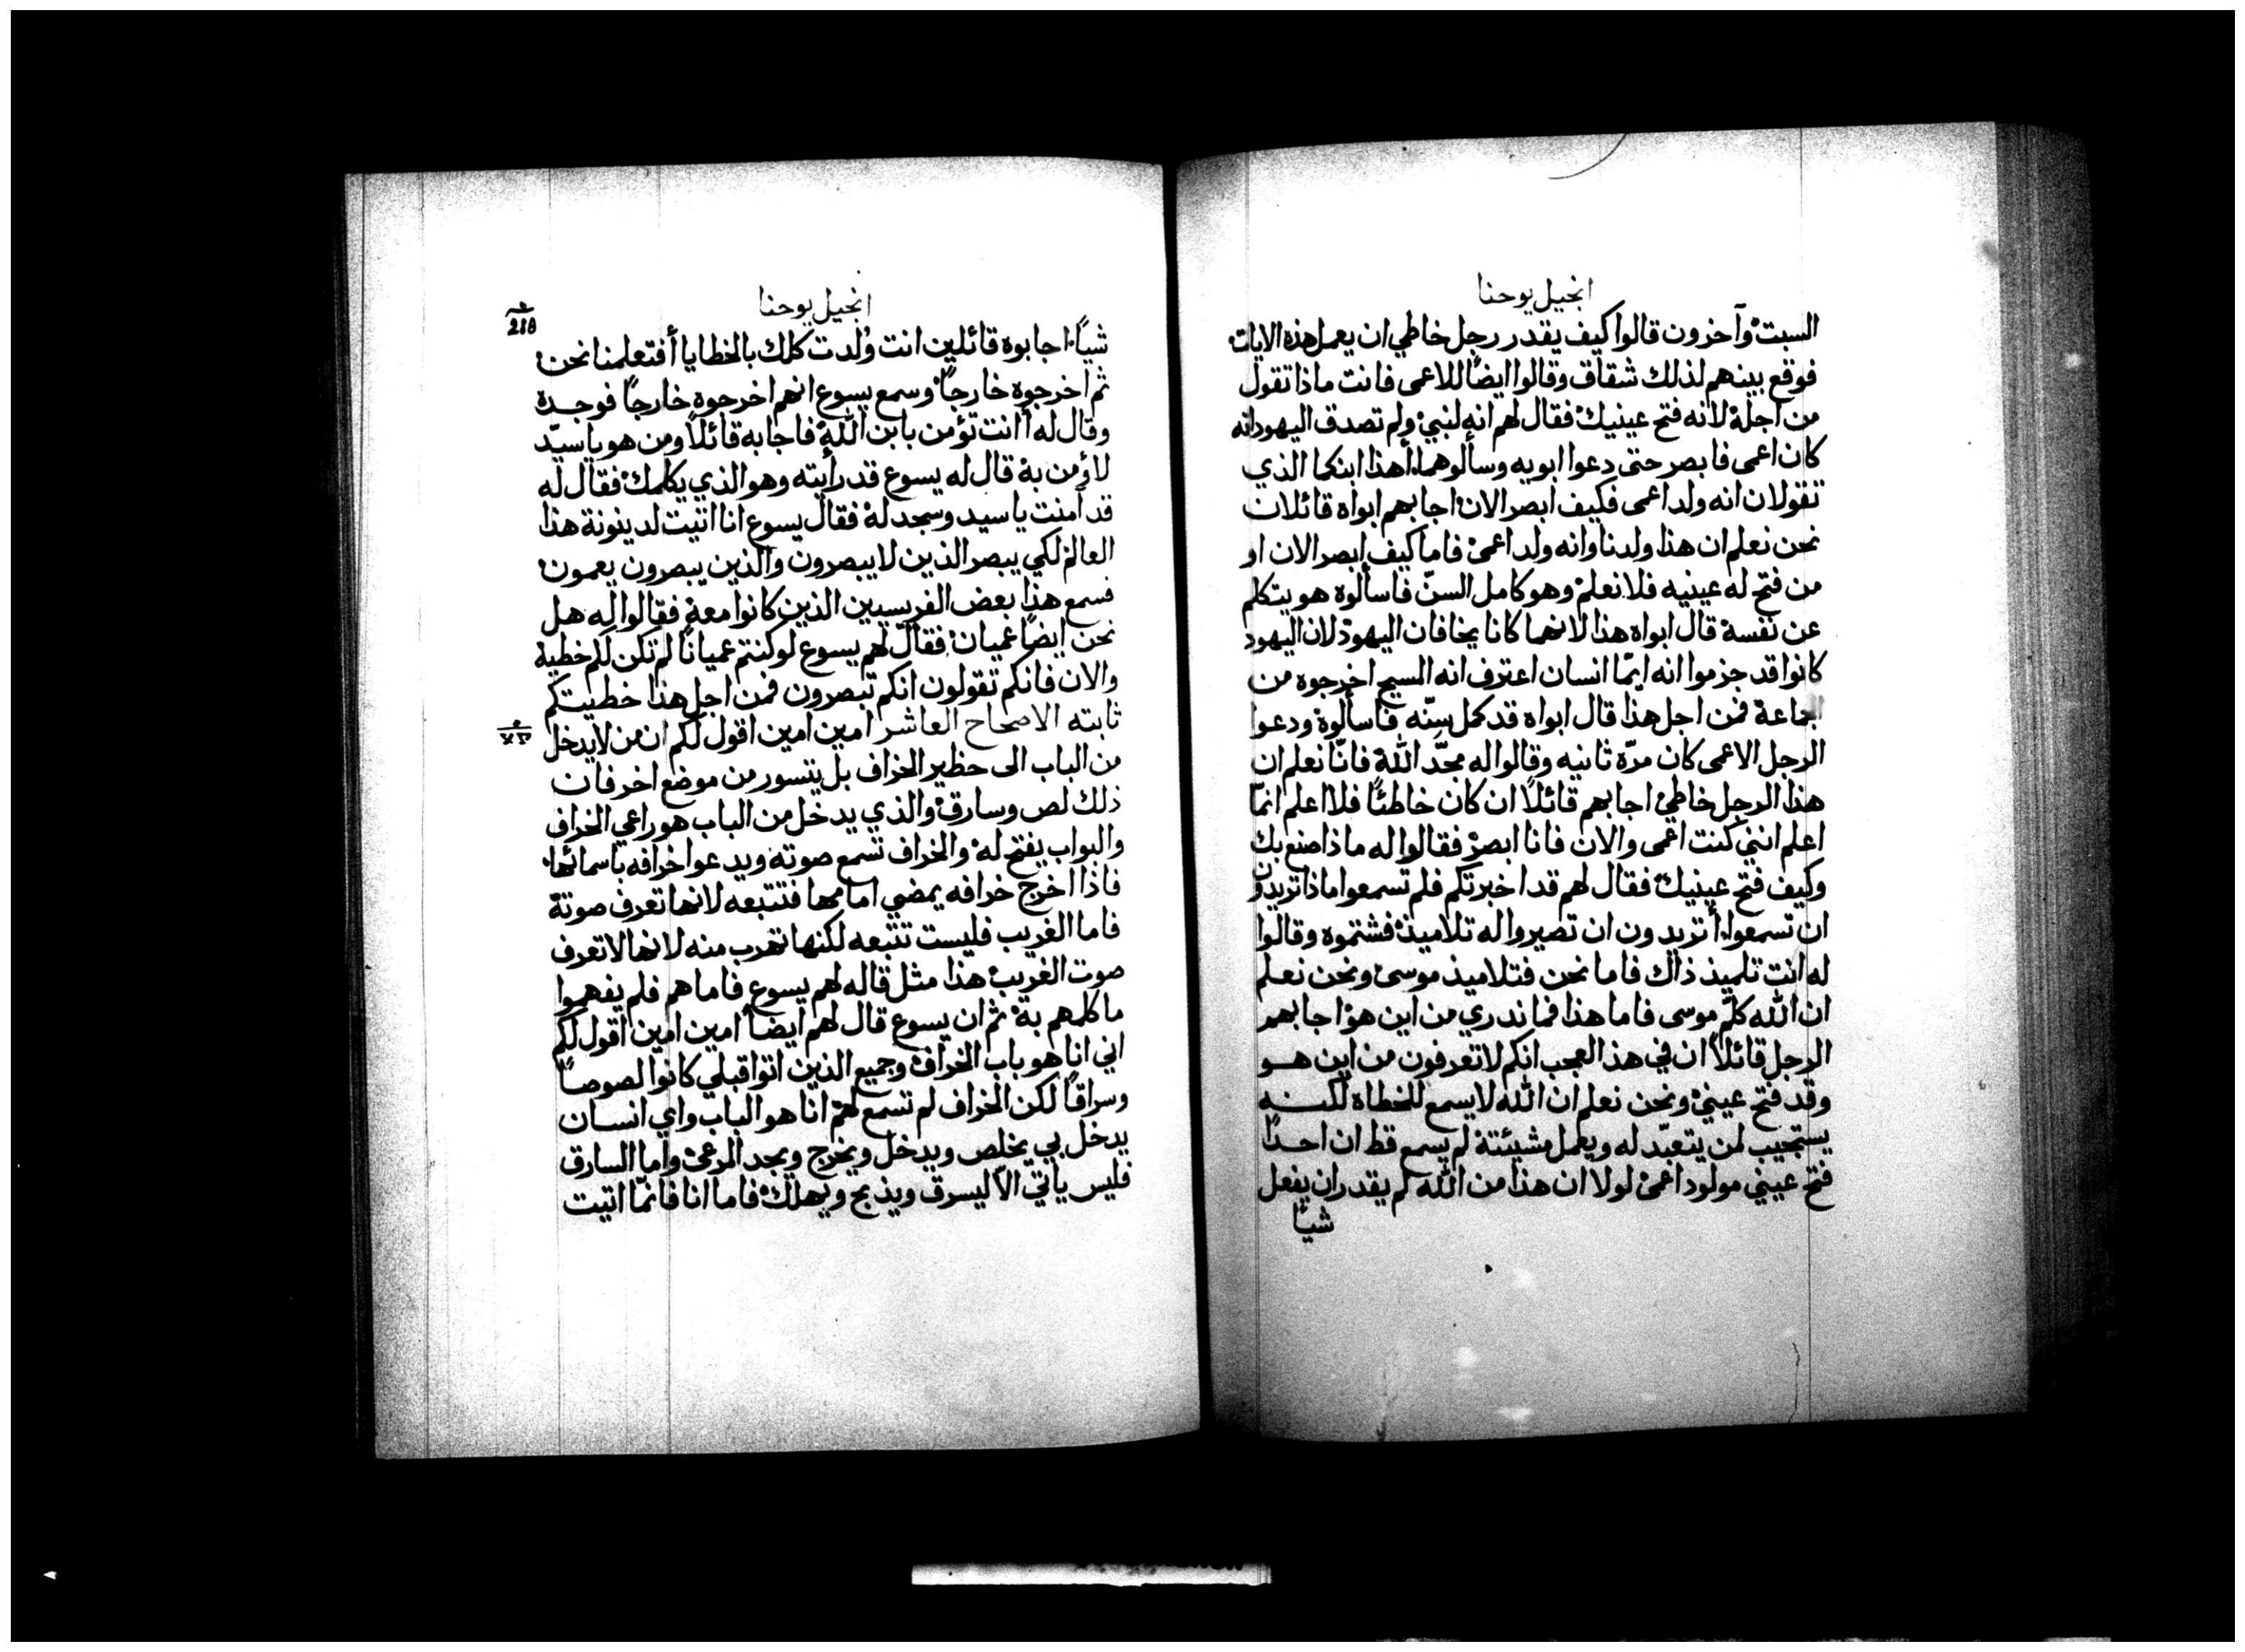 انجيل يوحنا
السبت وآخرون قالوا كيف يقدر رجل خاطي ان يعمل هذه الايات
فوقع بينهم لذلك شقاق وقالوا ايضًا للاعمى فانت ماذا تقول
من اجله لانه فتح عينيك فقال لهم انه لنبي ولم تصدق اليهود انه
كان اعمى فابصر حتى دعوا ابويه وسألوهما أهذا ابنكما الذي
تقولان انه ولد اعمى فكيف ابصر الان اجابهم ابواه قائلان
نحن نعلم ان هذا ولدنا وانه ولد اعمى فاما كيف ابصر الان او
من فتح له عينيه فلا نعلم وهو كامل السنّ فاسألوه هو يتكلم
عن نفسه قال ابواه هذا لانهما كانا يخافان اليهود لان اليهود
كانوا قد جزموا انه ايّما انسان اعترف انه المسيح اخرجوه من
الجماعة فمن اجل هذا قال ابواه قد كمل سنّه فاسألوه ودعوا
الرجل الاعمى كان مرّة ثانيه وقالوا له مجّد الله فانّا نعلم ان
هذا الرجل خاطئ اجابهم قائلاً ان كان خاطئًا فلا اعلم انمّا
اعلم انني كنت اعمى والان فانا ابصر فقالوا له ماذا صنع بك
وكيف فتح عينيك فقال لهم قد اخبرتكم فلم تسمعوا ماذا تريدون
ان تسمعوا أتريدون ان تصيروا له تلاميذ فشتموه وقالوا
له انت تلميذ ذاك فاما نحن فتلاميذ موسى ونحن نعلم
ان الله كلّم موسى فاما هذا فما ندري من اين هو اجابهم
الرجل قائلاً ان في هذ العجب انكم لا تعرفون من اين هو
وقد فتح عيني ونحن نعلم ان الله لا يسمع للخطاه لكنه
يستجيب لمن يتعبّد له ويعمل مشيئته لم يسمع قط ان احدًا
فتح عيني مولود اعمى لولا ان هذا من الله لم يقدر ان يفعل
شيًا
انجيل يوحنا
شيًا اجابوه قائلين انت وُلدت كلك بالخطايا أفتعلمنا نحن
ثم اخرجوه خارجًا وسمع يسوع انهم اخرجوه خارجًا فوجده
وقال له أانت تؤمن بابن الله فاجابه قائلاً ومن هو يا سيّد
لاؤمن به قال له يسوع قد رأيته وهو الذي يكلمك فقال له
قد آمنت يا سيد وسجد له فقال يسوع انا اتيت لدينونة هذا
العالم لكي يبصر الذين لا يبصرون والذين يبصرون يعمون
فسمع هذا بعض الفريسيين الذين كانوا معه فقالوا له هل
نحن ايضًا عميان فقال لهم يسوع لو كنتم عميانًا لم تكن لكم خطية
والان فانكم تقولون انكم تبصرون فمن اجل هذا خطيتكم
ثابته الاصحاح العاشر امين امين اقول لكم ان من لا يدخل
من الباب الى حظير الخراف بل يتسور من موضع اخر فان
ذلك لص وسارق والذي يدخل من الباب هو راعي الخراف
والبواب يفتح له والخراف تسمع صوته ويدعوا خرافه باسمائها
فاذا اخرج خرافه يمضي امامها فتتبعه لانها تعرف صوته
فاما الغريب فليست تتبعه لكنها تهرب منه لانها لا تعرف
صوت الغريب هذا مثل قاله لهم يسوع فاما هم فلم يفهموا
ما كلمهم به ثم ان يسوع قال لهم ايضاً امين امين اقول لكم
اني انا هو باب الخراف وجميع الذين اتوا قبلي كانوا لصوصًا
وسراقًا لكن الخراف لم تسمع لهم انا هو الباب واي انسان
يدخل بي يخلص ويدخل ويخرج ويجد المرعى واما السارق
فليس ياتي الاّ ليسرق ويذبح ويهلك فاما انا فانمّا اتيت